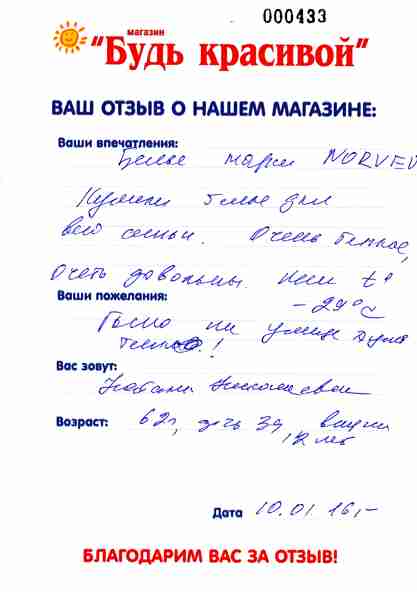 000433
магазин
"Будь красивой"
ВАШ ОТЗЫВ О НАШЕМ МАГАЗИНЕ:
Ваши впечатления:
Белье марки NORVEG
Купили белье для
всей семьи. Очень теплое,
Очень довольны. t°
Ваши пожелания:
- 29°C
Было на улице
тепло!
Вас зовут:
Николаевна
Возраст: 62г, дочь 39, внучки
12 лет
Дата 10.01.16,-
БЛАГОДАРИМ ВАС ЗА ОТЗЫВ!